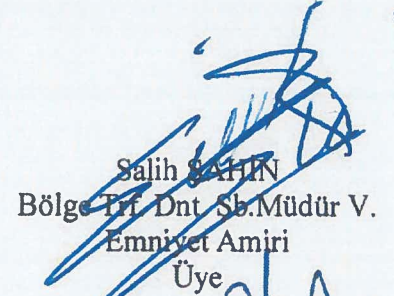 Salih ŞAHİN
Bölge Trf. Dnt. Şb.Müdür V.
Emniyet Amiri
Üye